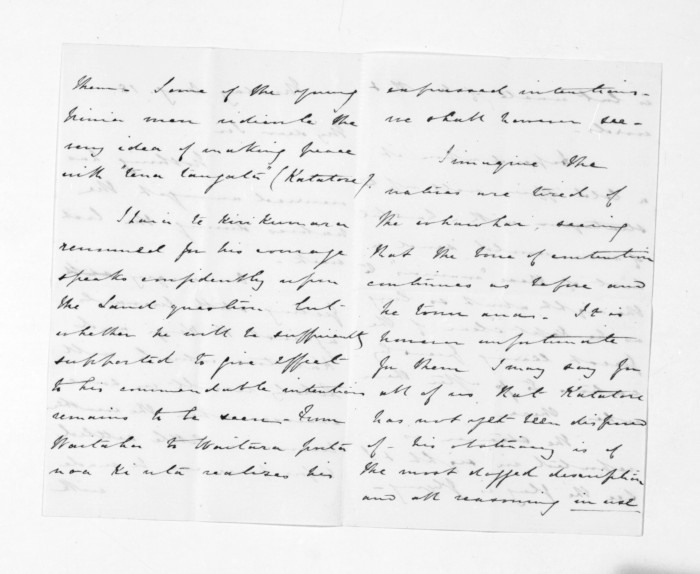 them. Some of the young
Ninia men ridicule the
very idea of making peace
with "tena tangata" (Katatore).
Ihaia te Kirikumara
renowned for his courage
speaks confidently upon
the Land question but
whether he will be sufficiently
supported to give effect
to his commendable intentions
remains to be seen. From
Waitaha to Waitara puta
noa ki uta realizes his
expressed intentions.
we shall however see.
I imagine the
natives are tired of
the whawhai. seeing
that the bone of contention
continues as before and
he too. It is
however unfortunate
for them I may say for
all of us that Katatore
has not yet been disposed
of. his obstinacy is of
the most dogged description
and all reasoning in